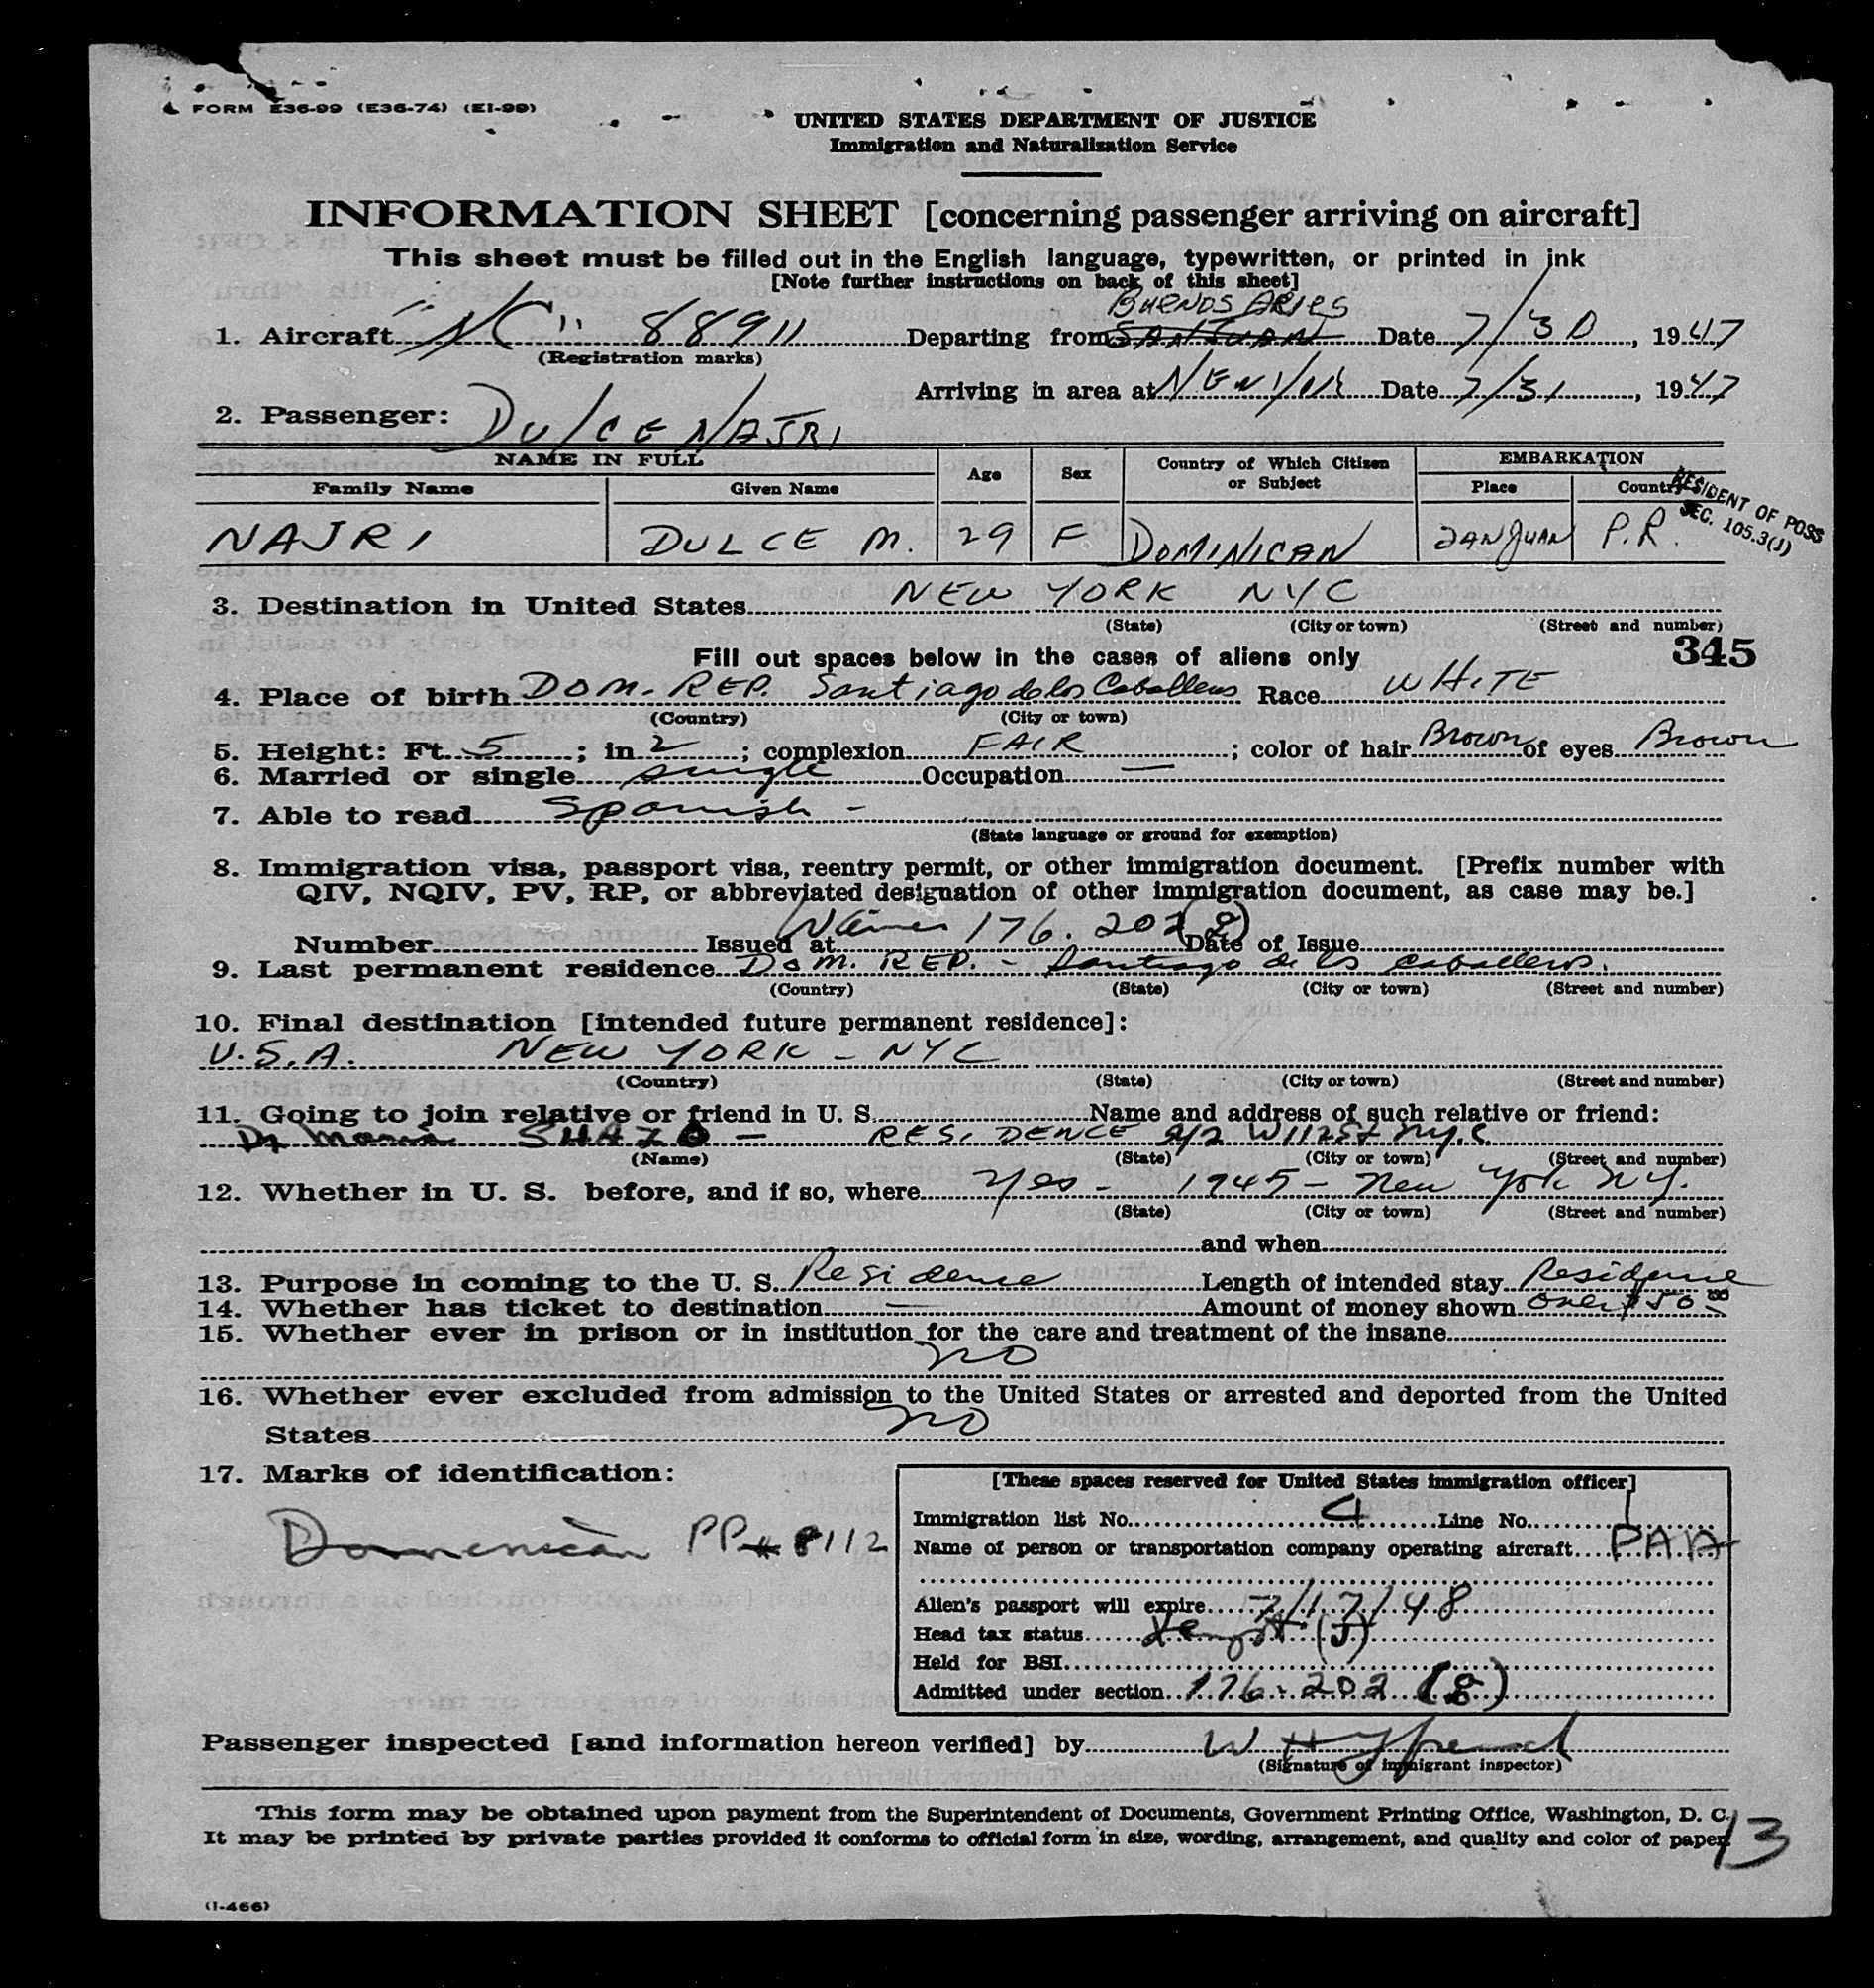 FORM E36-99 (E36-74) (EI-99)
UNITED STATES DEPARTMENT OF JUSTICE
Immigration and Naturalization Service
INFORMATION SHEET [concerning passenger arriving on aircraft]
This sheet must be filled out in the English language, typewritten, or printed in ink
[Note further instructions on back of this sheet]
BUENOS ARIES
1. Aircraft "NC" 88911 Departing from SAN JUAN Date 7/30, 1947
(Registration marks)
Arriving in area at Date 7/31, 1947
2. Passenger: DULCE NAJRI
NAME IN FULL Age Sex Country of Which Citizen or Subject EMBARKATION
Family Name Given Name Place Country
RESIDENT OF POSS
SEC. 105.3(J)
NAJRI DULCE M. 29 F DOMINICAN SAN JUAN P.R.
3. Destination in United States NEW YORK NYC
(State) (City or town) (Street and number)
345
Fill out spaces below in the cases of aliens only
4. Place of birth DOM. REP. Santiago de los Caballeros Race WHITE
(Country) (City or town)
5. Height: Ft. 5; in 2; complexion FAIR; color of hair Brown of eyes Brown
6. Married or single single Occupation —
7. Able to read Spanish -
(State language or ground for exemption)
8. Immigration visa, passport visa, reentry permit, or other immigration document. [Prefix number with
QIV, NQIV, PV, RP, or abbreviated designation of other immigration document, as case may be.]
Number Issued at 176.202(g) Date of Issue
9. Last permanent residence DOM. REP. - Santiago de los Caballeros.
(Country) (State) (City or town) (Street and number)
10. Final destination [intended future permanent residence]:
U.S.A. NEW YORK - NYC
(Country) (State) (City or town) (Street and number)
11. Going to join relative or friend in U. S. Name and address of such relative or friend:
RESIDENCE W 112 St NYC
(Name) (State) (City or town) (Street and number)
12. Whether in U. S. before, and if so, where Yes - 1945 - New York NY.
(State) (City or town) (Street and number)
and when
13. Purpose in coming to the U. S. Residence Length of intended stay Residence
14. Whether has ticket to destination — Amount of money shown over $50.00
15. Whether ever in prison or in institution for the care and treatment of the insane
no
16. Whether ever excluded from admission to the United States or arrested and deported from the United
States no
17. Marks of identification:
Dominican PP# 8112
[These spaces reserved for United States immigration officer]
Immigration list No. 4 Line No. 1
Name of person or transportation company operating aircraft PAA
Alien's passport will expire 7/17/48
Head tax status Exempt (J)
Held for BSI
Admitted under section 176.202 (g)
Passenger inspected [and information hereon verified] by
(Signature of immigrant inspector)
This form may be obtained upon payment from the Superintendent of Documents, Government Printing Office, Washington, D. C.
It may be printed by private parties provided it conforms to official form in size, wording, arrangement, and quality and color of paper.
13
(I-466)